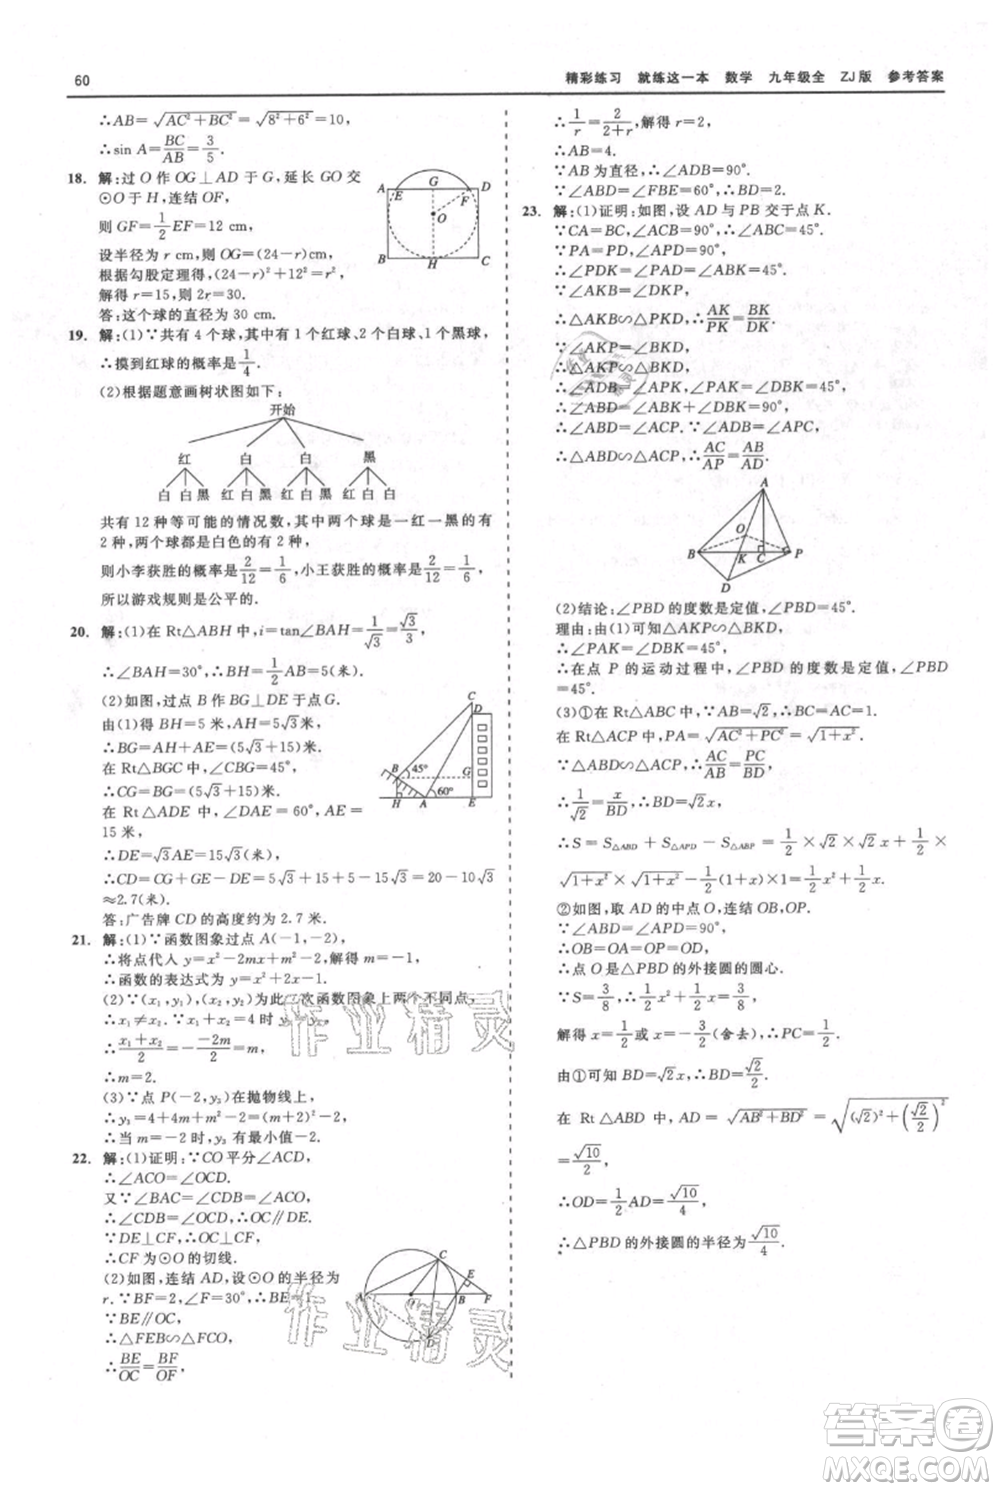 60
精彩练习 就练这一本 数学 九年级全 ZJ版 参考答案
∴AB=√(AC²+BC²)=√(8²+6²)=10,
∴sin A=BC/AB=3/5.
18. 解:过 O 作 OG⊥AD 于 G,延长 GO 交
⊙O 于 H,连结 OF,
则 GF=1/2 EF=12 cm,
设半径为 r cm,则 OG=(24-r)cm,
根据勾股定理得,(24-r)²+12²=r²,
解得 r=15,则 2r=30.
答:这个球的直径为 30 cm.
A E G F D
O
B H C
19. 解:(1)∵共有 4 个球,其中有 1 个红球、2 个白球、1 个黑球,
∴摸到红球的概率是1/4.
(2)根据题意画树状图如下:
开始
红 白 白 黑
白 白 黑 红 白 黑 红 白 黑 红 白 白
共有 12 种等可能的情况数,其中两个球是一红一黑的有
2 种,两个球都是白色的有 2 种,
则小李获胜的概率是2/12=1/6,小王获胜的概率是2/12=1/6,
所以游戏规则是公平的.
20. 解:(1)在 Rt△ABH 中,i=tan∠BAH=1/√3=√3/3,
∴∠BAH=30°,∴BH=1/2 AB=5(米).
(2)如图,过点 B 作 BG⊥DE 于点 G.
由(1)得 BH=5 米,AH=5√3米,
∴BG=AH+AE=(5√3+15)米.
在 Rt△BGC 中,∠CBG=45°,
∴CG=BG=(5√3+15)米.
在 Rt△ADE 中,∠DAE=60°,AE=
15 米,
∴DE=√3AE=15√3(米).
∴CD=CG+GE-DE=5√3+15+5-15√3=20-10√3
≈2.7(米).
答:广告牌 CD 的高度约为 2.7 米.
C D B 45° G 60° H A E
21. 解:(1)∵函数图象过点 A(-1,-2),
∴将点代入 y=x²-2mx+m²+2m-1,解得 m=-1,
∴函数的表达式为 y=x²+2x-2.
(2)∵(x₁,y₁),(x₂,y₂)为此二次函数图象上两个不同点,
∴x₁≠x₂.∵x₁+x₂=4 时 y₁=y₂,
∴(x₁+x₂)/2=-(-2m)/2=2,
∴m=2.
(3)∵点 P(-2,y₃)在抛物线上,
∴y₃=4+4m+m²+2m-1=m²+6m+3,
∴当 m=-2 时,y₃有最小值-2.
22. 解:(1)证明:∵CO 平分∠ACD,
∴∠ACO=∠OCD.
又∵∠BAC=∠CDB=∠ACO,
∴∠CDB=∠OCD,∴OC∥DE.
∵DE⊥CF,∴OC⊥CF,
∴CF 为⊙O 的切线.
(2)如图,连结 AD,设⊙O 的半径为
r.∵BF=2,∠F=30°,∴BE=1.
∵BE∥OC,
∴△FEB∽△FCO,
∴BE/OC=BF/OF,
C E A O B F D
∴1/r=2/(2+r),解得 r=2,
∴AB=4.
∵AB 为直径,∴∠ADB=90°.
∵∠ABD=∠FBE=60°,∴BD=2.
23. 解:(1)证明:如图,设 AD 与 PB 交于点 K.
∵CA=BC,∠ACB=90°,∴∠ABC=45°.
∵PA=PD,∠APD=90°,
∴∠PDK=∠PAD=∠ABK=45°.
∵∠AKB=∠DKP,
∴△AKB∽△PKD,∴AK/PK=BK/DK.
∵∠AKP=∠BKD,∴△AKP∽△BKD,
∴∠ADB=∠APK,∠PAK=∠DBK=45°,
∴∠ABD=∠ABK+∠DBK=90°,
∴∠ABD=∠ACP.∵∠ADB=∠APC,
∴△ABD∽△ACP,∴AC/AP=AB/AD.
A O B K C P D
(2)结论:∠PBD 的度数是定值,∠PBD=45°.
理由:由(1)可知△AKP∽△BKD,
∴∠PAK=∠DBK=45°,
∴在点 P 的运动过程中,∠PBD 的度数是定值,∠PBD
=45°.
(3)①在 Rt△ABC 中,∵AB=√2,∴BC=AC=1.
在 Rt△ACP 中,PA=√(AC²+PC²)=√(1+x²).
∵△ABD∽△ACP,∴AC/AB=PC/BD,
∴1/√2=x/BD,∴BD=√2x,
∴S=S△ABD+S△APD-S△ABP=1/2×√2×√2x+1/2×
√(1+x²)×√(1+x²)-1/2×(1+x)×1=1/2x²+1/2x.
②如图,取 AD 的中点 O,连结 OB,OP.
∵∠ABD=∠APD=90°,
∴OB=OA=OD=OP,
∴点 O 是△PBD 的外接圆的圆心.
∵S=3/8,∴1/2x²+1/2x=3/8,
解得 x=1/2或 x=-3/2(舍去),∴PC=1/2.
由①可知 BD=√2x=√2/2.
在 Rt△ABD 中,AD=√(AB²+BD²)=√((√2)²+(√2/2)²)
=√10/2,
∴OD=1/2 AD=√10/4,
∴△PBD 的外接圆的半径为√10/4.
作业精灵
作业精灵
答案卷
MXQE.COM